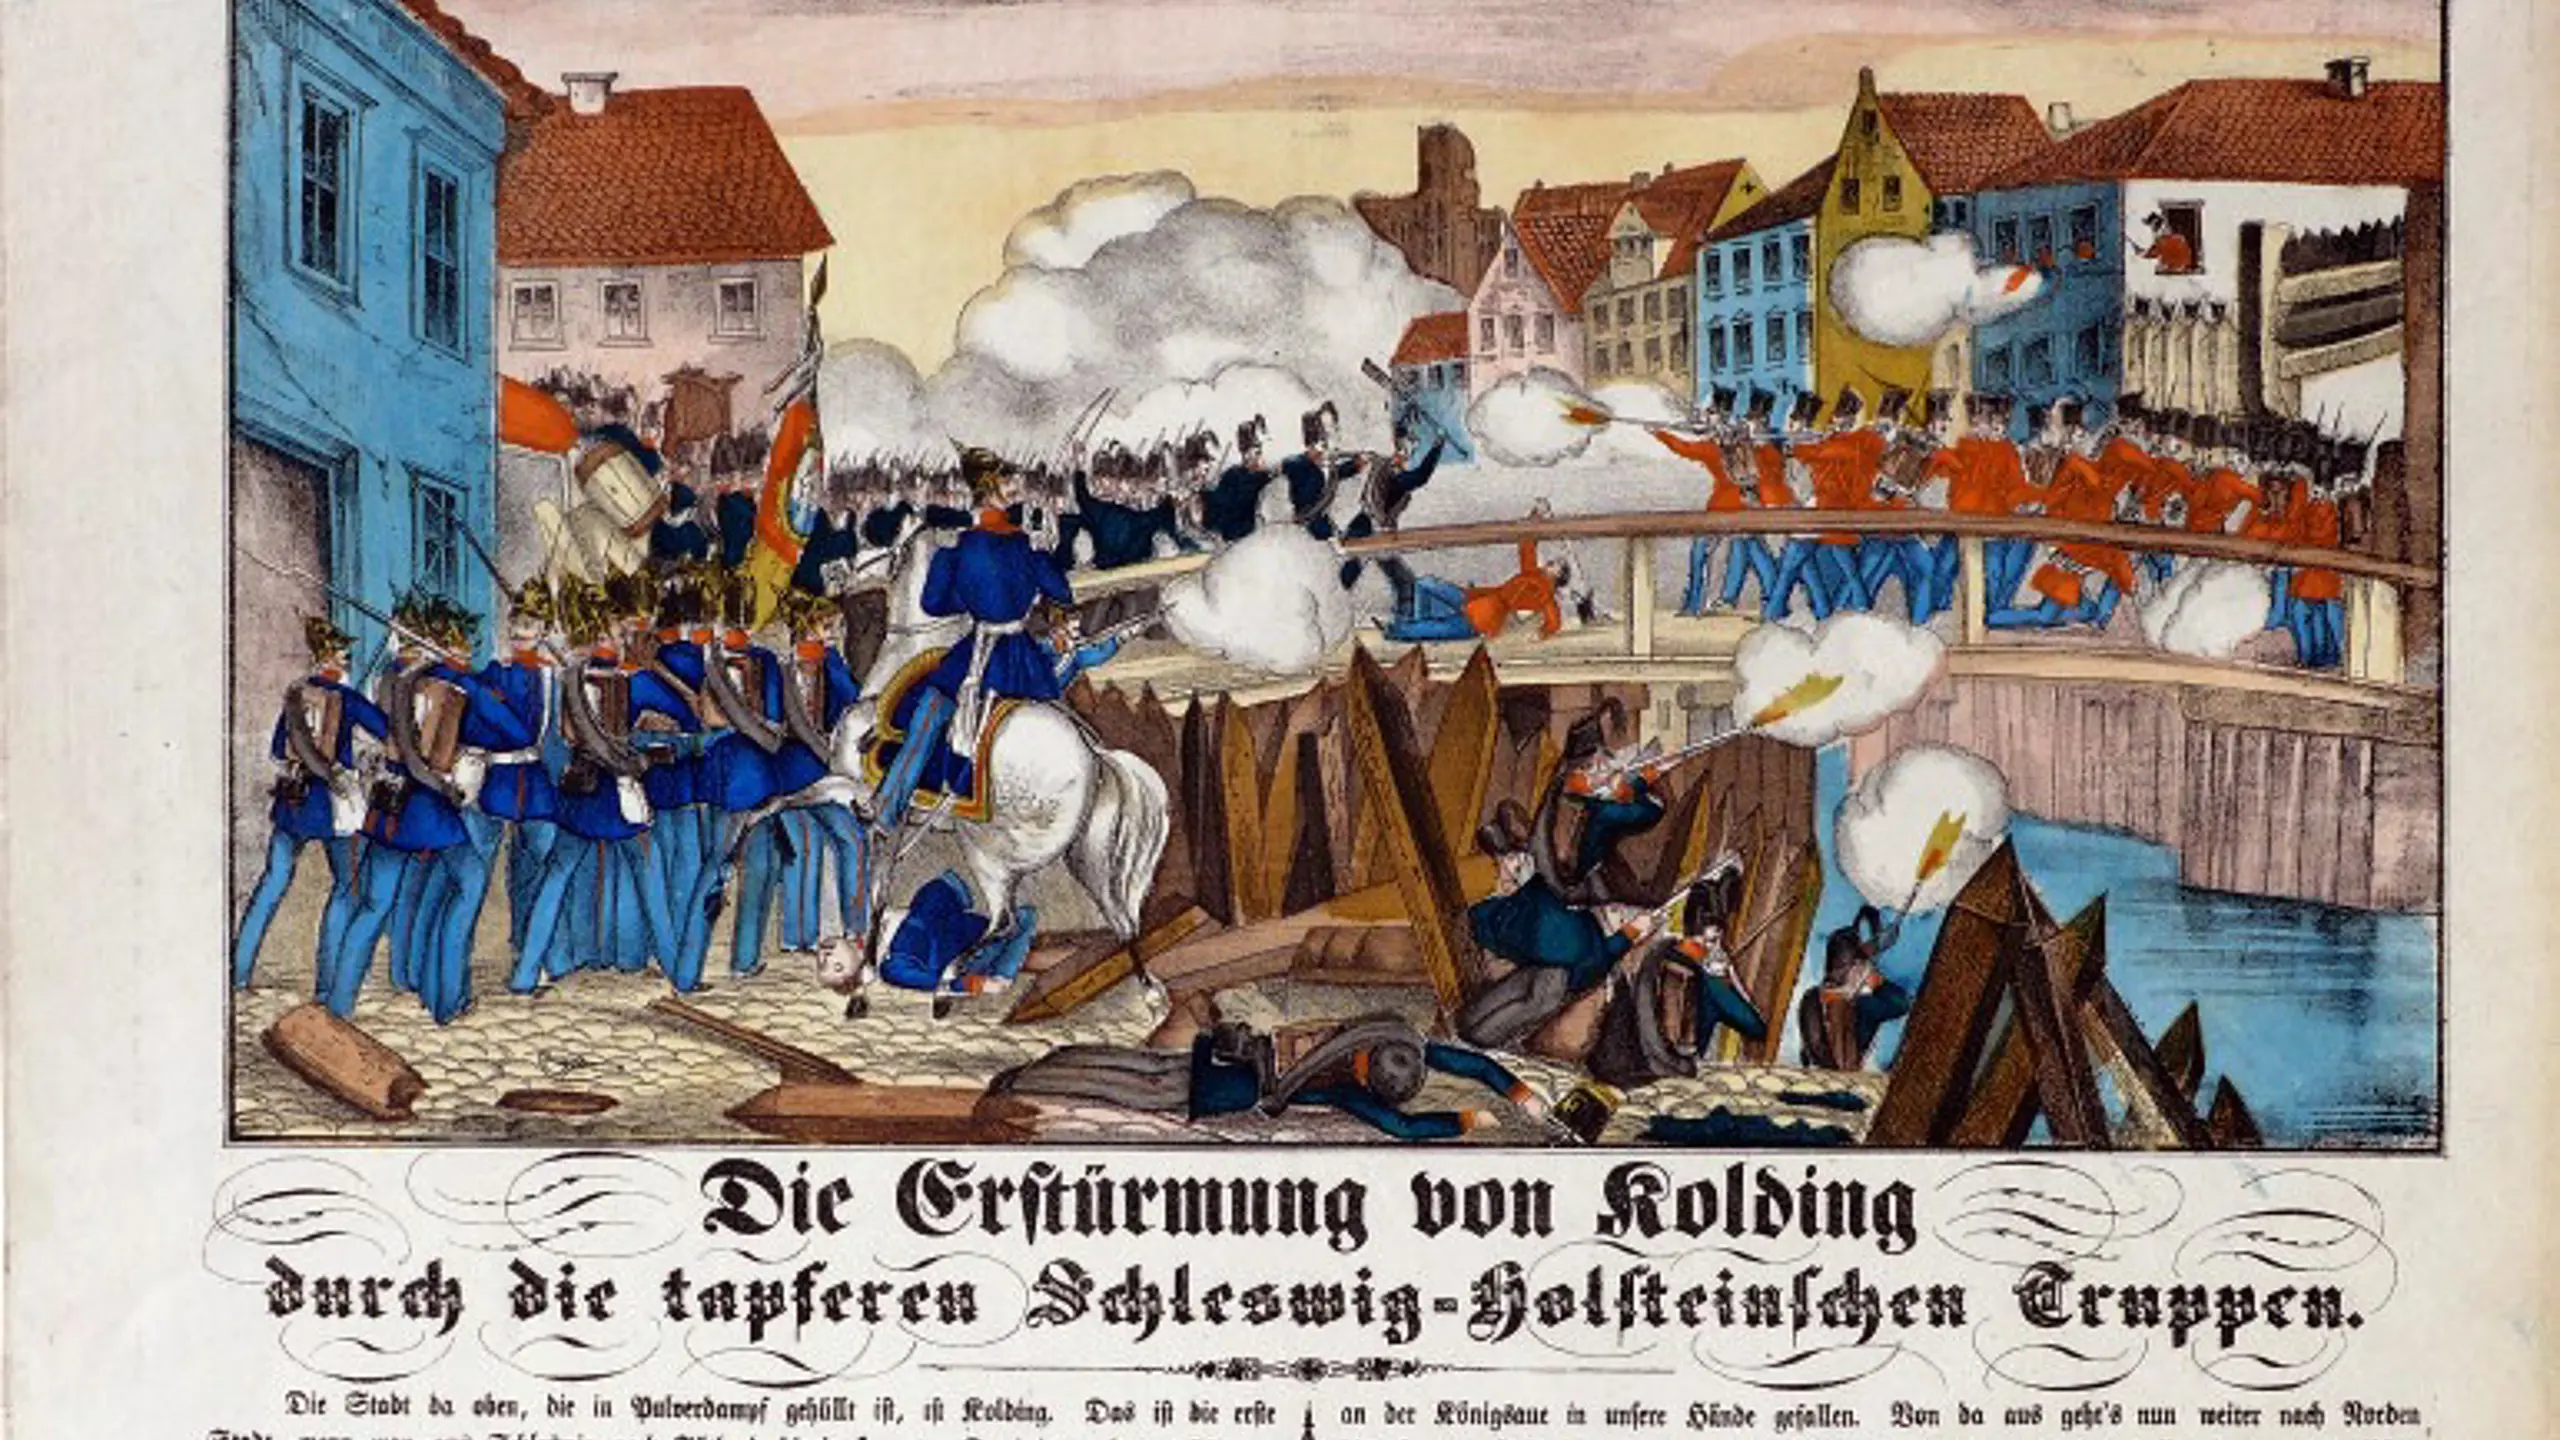 Die Erstürmung von Kolding
durch die tapferen Schleswig-Holsteinschen Truppen.
Die Stadt da oben, die in Pulverdampf gehüllt ist, ist Kolding. Das ist die erste
an der Königsaue in unsere Hände gefallen. Von da aus geht's nun weiter nach Norden